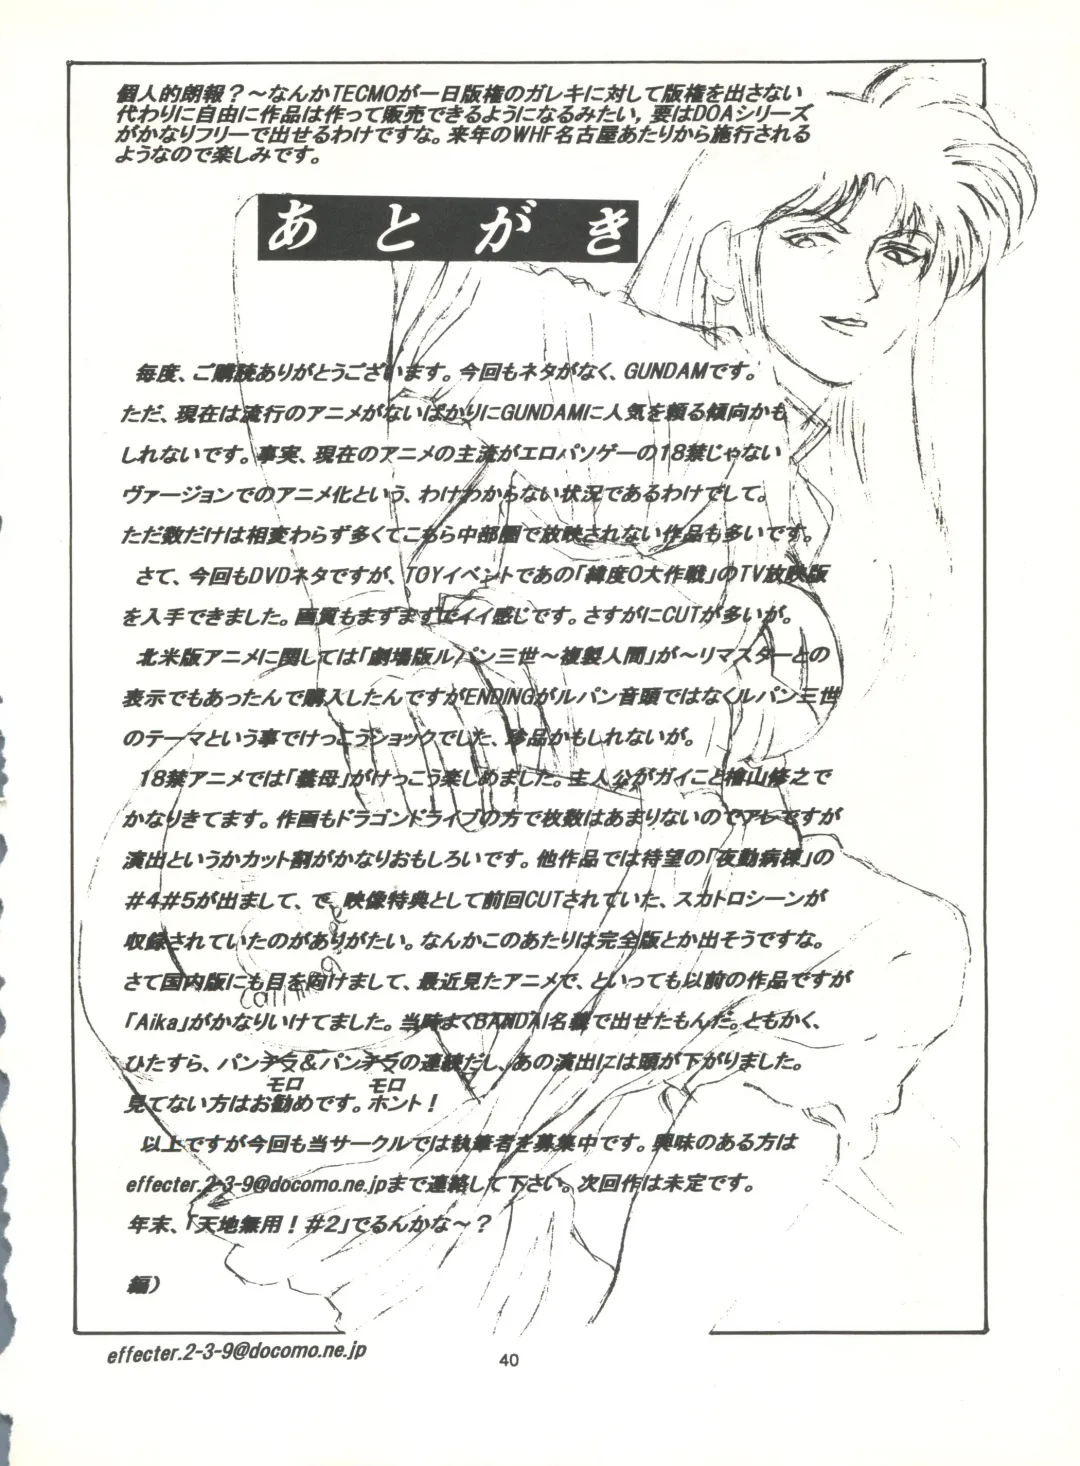 個人的朗報？～なんかTECMOが一日版権のガレキに対して版権を出さない
代わりに自由に作品は作って販売できるようになるみたい，要はDOAシリーズ
がかなりフリーで出せるわけですな。来年のWHF名古屋あたりから施行される
ようなので楽しみです。
あとがき
毎度、ご購読ありがとうございます。今回もネタがなく、GUNDAMです。
ただ、現在は流行のアニメがないばかりにGUNDAMに人気を頼る傾向かも
しれないです。事実、現在のアニメの主流がエロパソゲーの18禁じゃない
ヴァージョンでのアニメ化という、わけわからない状況であるわけでして。
ただ数だけは相変わらず多くてこちら中部圏で放映されない作品も多いです。
さて、今回もDVDネタですが、TOYイベントであの「緯度0大作戦」のTV放映版
を入手できました。画質もまずまずでイイ感じです。さすがにCUTが多いが。
北米版アニメに関しては「劇場版ルパン三世～複製人間」が～リマスターとの
表示でもあったんで購入したんですがENDINGがルパン音頭ではなくルパン三世
のテーマという事でけっこうショックでした、珍品かもしれないが。
18禁アニメでは「義母」がけっこう楽しめました。主人公がガイこと檜山修之で
かなりきてます。作画もドラゴンドライブの方で枚数はあまりないのでアレですが
演出というかカット割がかなりおもしろいです。他作品では待望の「夜勤病棟」の
#4#5が出まして、で、映像特典として前回CUTされていた、スカトロシーンが
収録されていたのがありがたい。なんかこのあたりは完全版とか出そうですな。
さて国内版にも目を向けまして、最近見たアニメで、といっても以前の作品ですが
「Aika」がかなりいけてました。当時よくBANDAI名義で出せたもんだ。ともかく、
ひたすら、パンチラ＆パンチラの連続だし、あの演出には頭が下がりました。
モロ モロ
見てない方はお勧めです。ホント！
以上ですが今回も当サークルでは執筆者を募集中です。興味のある方は
effecter.2-3-9@docomo.ne.jpまで連絡して下さい。次回作は未定です。
年末、「天地無用！#2」でるんかな～？
編）
effecter.2-3-9@docomo.ne.jp
40